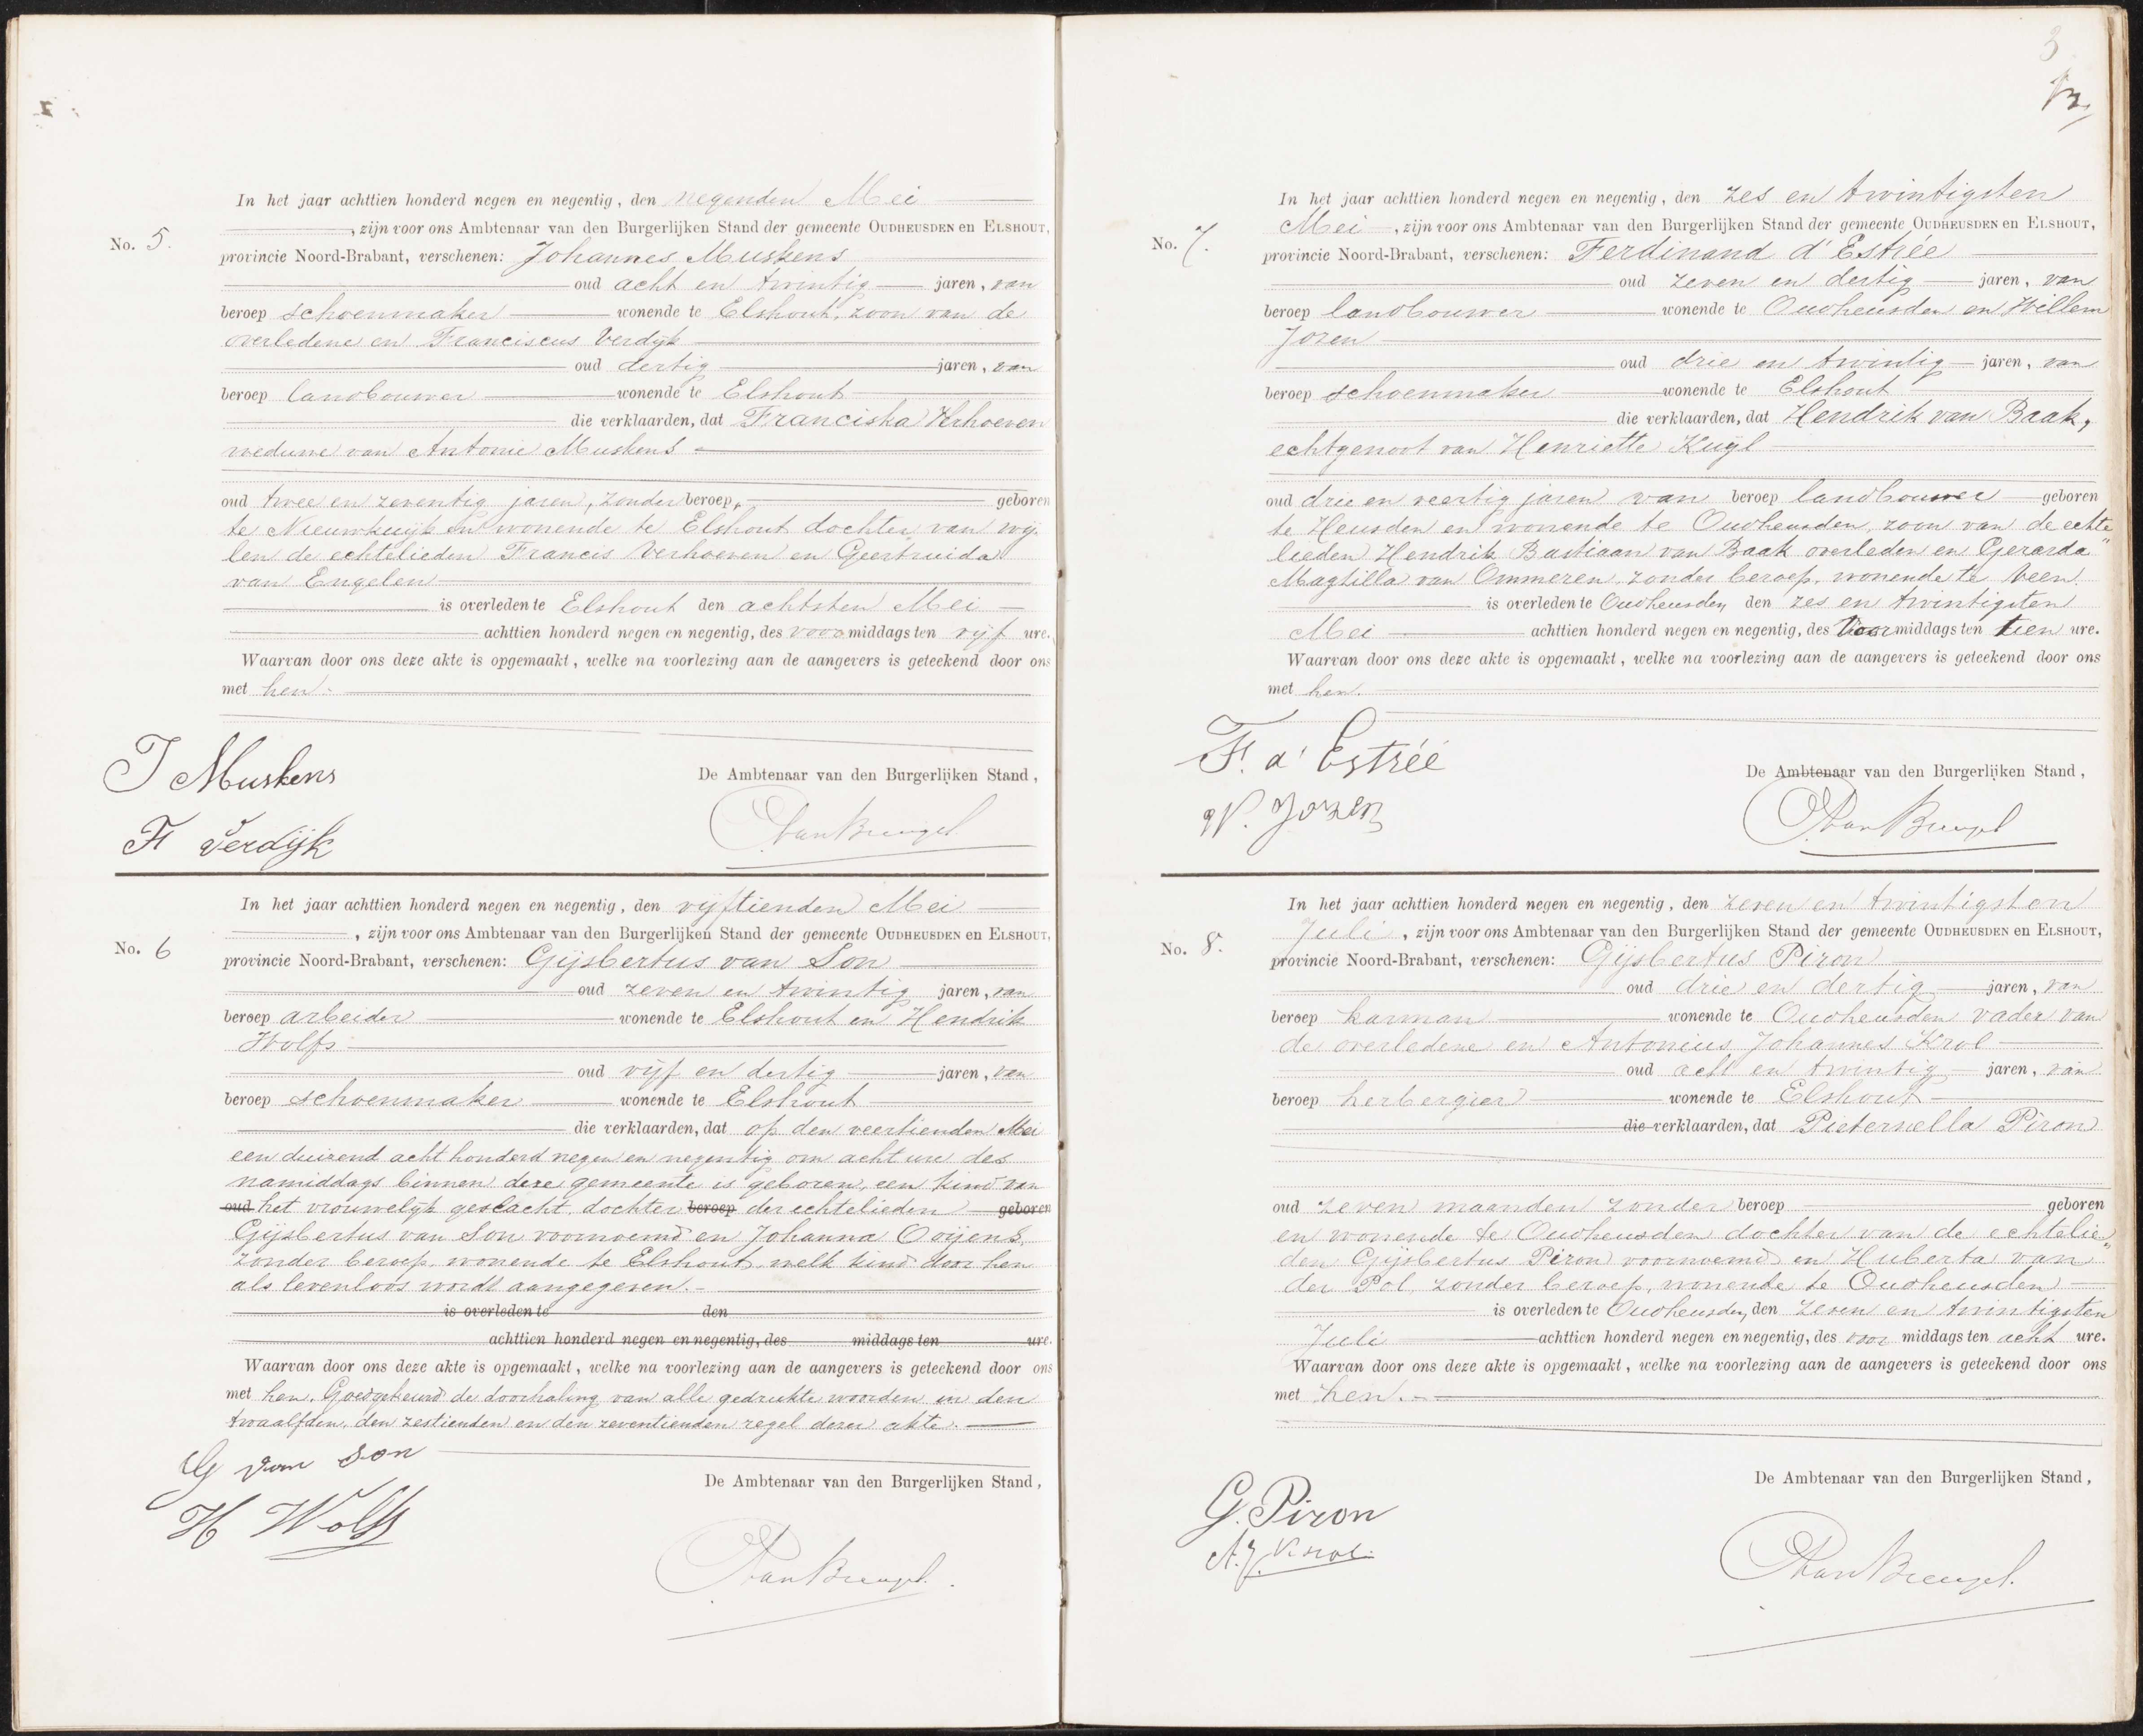 No. 5.
In het jaar achttien honderd negen en negentig, den negenden Mei
, zijn voor ons Ambtenaar van den Burgerlijken Stand der gemeente OUDHEUSDEN en ELSHOUT,
provincie Noord-Brabant, verschenen: Johannes Muskens
oud acht en twintig jaren, van
beroep schoenmaker wonende te Elshout, zoon van de
overledene en Franciscus Verdijk
oud dertig jaren, van
beroep landbouwer wonende te Elshout
die verklaarden, dat Franciska Verhoeven
weduwe van Antonie Muskens
oud twee en zeventig jaren, zonder beroep, geboren
te Nieuwkuijk en wonende te Elshout dochter van wij-
len de echtelieden Francis Verhoeven en Geertruida
van Engelen
is overleden te Elshout den achtsten Mei
achttien honderd negen en negentig, des voor middags ten vijf ure.
Waarvan door ons deze akte is opgemaakt, welke na voorlezing aan de aangevers is geteekend door ons
met hen.
J Muskens
F Verdijk
De Ambtenaar van den Burgerlijken Stand,
No. 6
In het jaar achttien honderd negen en negentig, den vijftienden Mei
, zijn voor ons Ambtenaar van den Burgerlijken Stand der gemeente OUDHEUSDEN en ELSHOUT,
provincie Noord-Brabant, verschenen: Gijsbertus van Son
oud zeven en twintig jaren, van
beroep arbeider wonende te Elshout en Hendrik
Wolfs
oud vijf en dertig jaren, van
beroep schoenmaker wonende te Elshout
die verklaarden, dat op den veertienden Mei
een duizend acht honderd negen en negentig om acht ure des
namiddags binnen deze gemeente is geboren, een kind van
oud het vrouwelijk geslacht, dochter beroep der echtelieden geboren
Gijsbertus van Son voornoemd en Johanna Ooijens,
zonder beroep, wonende te Elshout, welk kind door hen
als levenloos wordt aangegeven.
is overleden te den
achttien honderd negen en negentig, des middags ten ure.
Waarvan door ons deze akte is opgemaakt, welke na voorlezing aan de aangevers is geteekend door ons
met hen. Goedgekeurd de doorhaling van alle gedrukte woorden in den
twaalfden, den zestienden en den zeventienden regel dezer akte.
G van Son
H Wolfs
De Ambtenaar van den Burgerlijken Stand,
3
No. 7.
In het jaar achttien honderd negen en negentig, den zes en twintigsten
Mei, zijn voor ons Ambtenaar van den Burgerlijken Stand der gemeente OUDHEUSDEN en ELSHOUT,
provincie Noord-Brabant, verschenen: Ferdinand d'Estrée
oud zeven en dertig jaren, van
beroep landbouwer wonende te Oudheusden en Willem
Joren
oud drie en twintig jaren, van
beroep schoenmaker wonende te Elshout
die verklaarden, dat Hendrik van Baak,
echtgenoot van Henriette Kuijl
oud drie en veertig jaren van beroep landbouwer geboren
te Heusden en wonende te Oudheusden, zoon van de echte
lieden Hendrik Bastiaan van Baak overleden en Gerarda
Magtilla van Ommeren, zonder beroep, wonende te Veen
is overleden te Oudheusden, den zes en twintigsten
Mei achttien honderd negen en negentig, des Voor middags ten tien ure.
Waarvan door ons deze akte is opgemaakt, welke na voorlezing aan de aangevers is geteekend door ons
met hen.
F. d'Estréé
W. Joren
De Ambtenaar van den Burgerlijken Stand,
No. 8.
In het jaar achttien honderd negen en negentig, den zeven en twintigsten
Juli, zijn voor ons Ambtenaar van den Burgerlijken Stand der gemeente OUDHEUSDEN en ELSHOUT,
provincie Noord-Brabant, verschenen: Gijsbertus Piron
oud drie en dertig jaren, van
beroep karman wonende te Oudheusden vader van
de overledene en Antonius Johannes Krol
oud acht en twintig jaren, van
beroep herbergier wonende te Elshout
die verklaarden, dat Pieternella Piron
oud zeven maanden zonder beroep geboren
en wonende te Oudheusden dochter van de echtelie
den Gijsbertus Piron voornoemd en Huberta van
der Pol, zonder beroep, wonende te Oudheusden
is overleden te Oudheusden, den zeven en twintigsten
Juli achttien honderd negen en negentig, des voor middags ten acht ure.
Waarvan door ons deze akte is opgemaakt, welke na voorlezing aan de aangevers is geteekend door ons
met hen.
G. Piron
A.J. Krol.
De Ambtenaar van den Burgerlijken Stand,